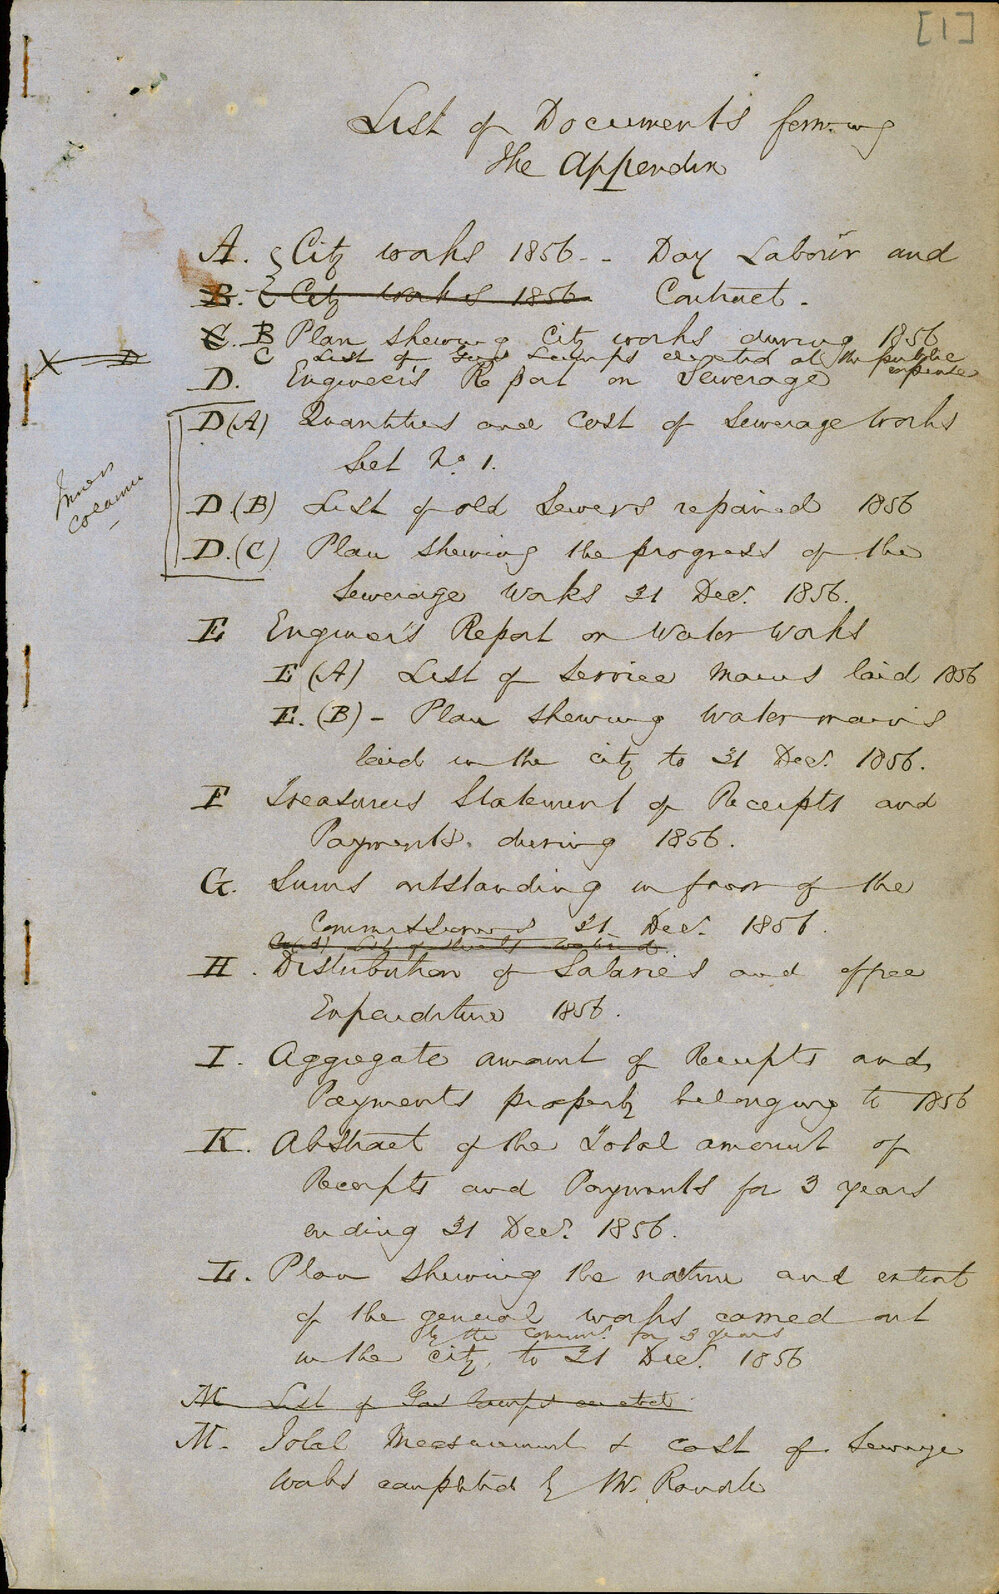 [1]
List of Documents forming
the Appendix
A. City works 1856 - - Day Labour and
B. City Works 1856 Contract -
C. B Plan shewing City works during 1856
C List of Gas Lamps erected at the public expense
D. Engineer's Report on Sewerage
D (A) Quantities and Cost of Sewerage Works
Set No 1.
D. (B) List of old Sewers repaired 1856
D. (C) Plan shewing the progress of the
Sewerage Works 31 Decr. 1856.
Inner
Column
E Engineer's Report on Water Works
E (A) List of Service Mains laid 1856
E. (B) - Plan shewing Water mains
laid in the city to 31 Decr. 1856.
F Treasurers Statement of Receipts and
Payments during 1856.
G. Sums outstanding in favor of the
Commissioners 31 Decr. 1856.
List of Streets
H. Distribution of Salaries and office
Expenditure 1856.
I. Aggregate amount of Receipts and
Payments properly belonging to 1856
K. Abstract of the Total amount of
Receipts and Payments for 3 years
ending 31 Decr. 1856.
L. Plan shewing the nature and extent
of the general works carried out
by the Commrs. for 3 years
in the city, to 31 Decr. 1856
M List of Gas Lamps erected
M. Total Measurement & cost of Sewerage
Works completed by Mr. Randle